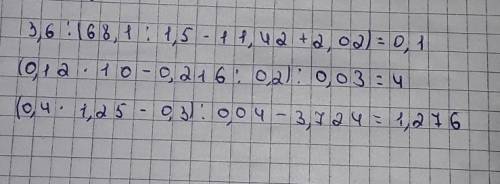 3,6 : (68,1 : 1,5 - 11,42 + 2,02) = 0,1
(0,12 · 10 - 0,216 : 0,2) : 0,03 = 4
(0,4 · 1,25 - 0,3) : 0,04 - 3,724 = 1,276